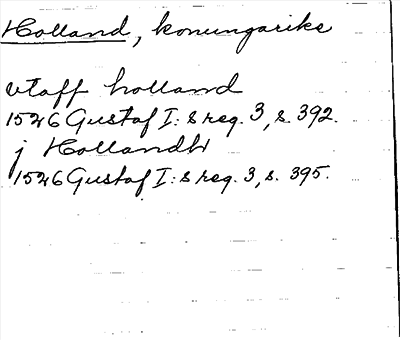 Holland, konungarike
vtaff holland
1526 Gustaf I:s reg. 3, s. 392.
j Hollandh
1526 Gustaf I:s reg. 3, s. 395.